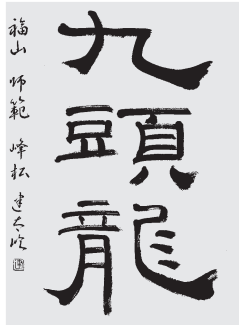 九頭龍
福山 師範 峰松 建太